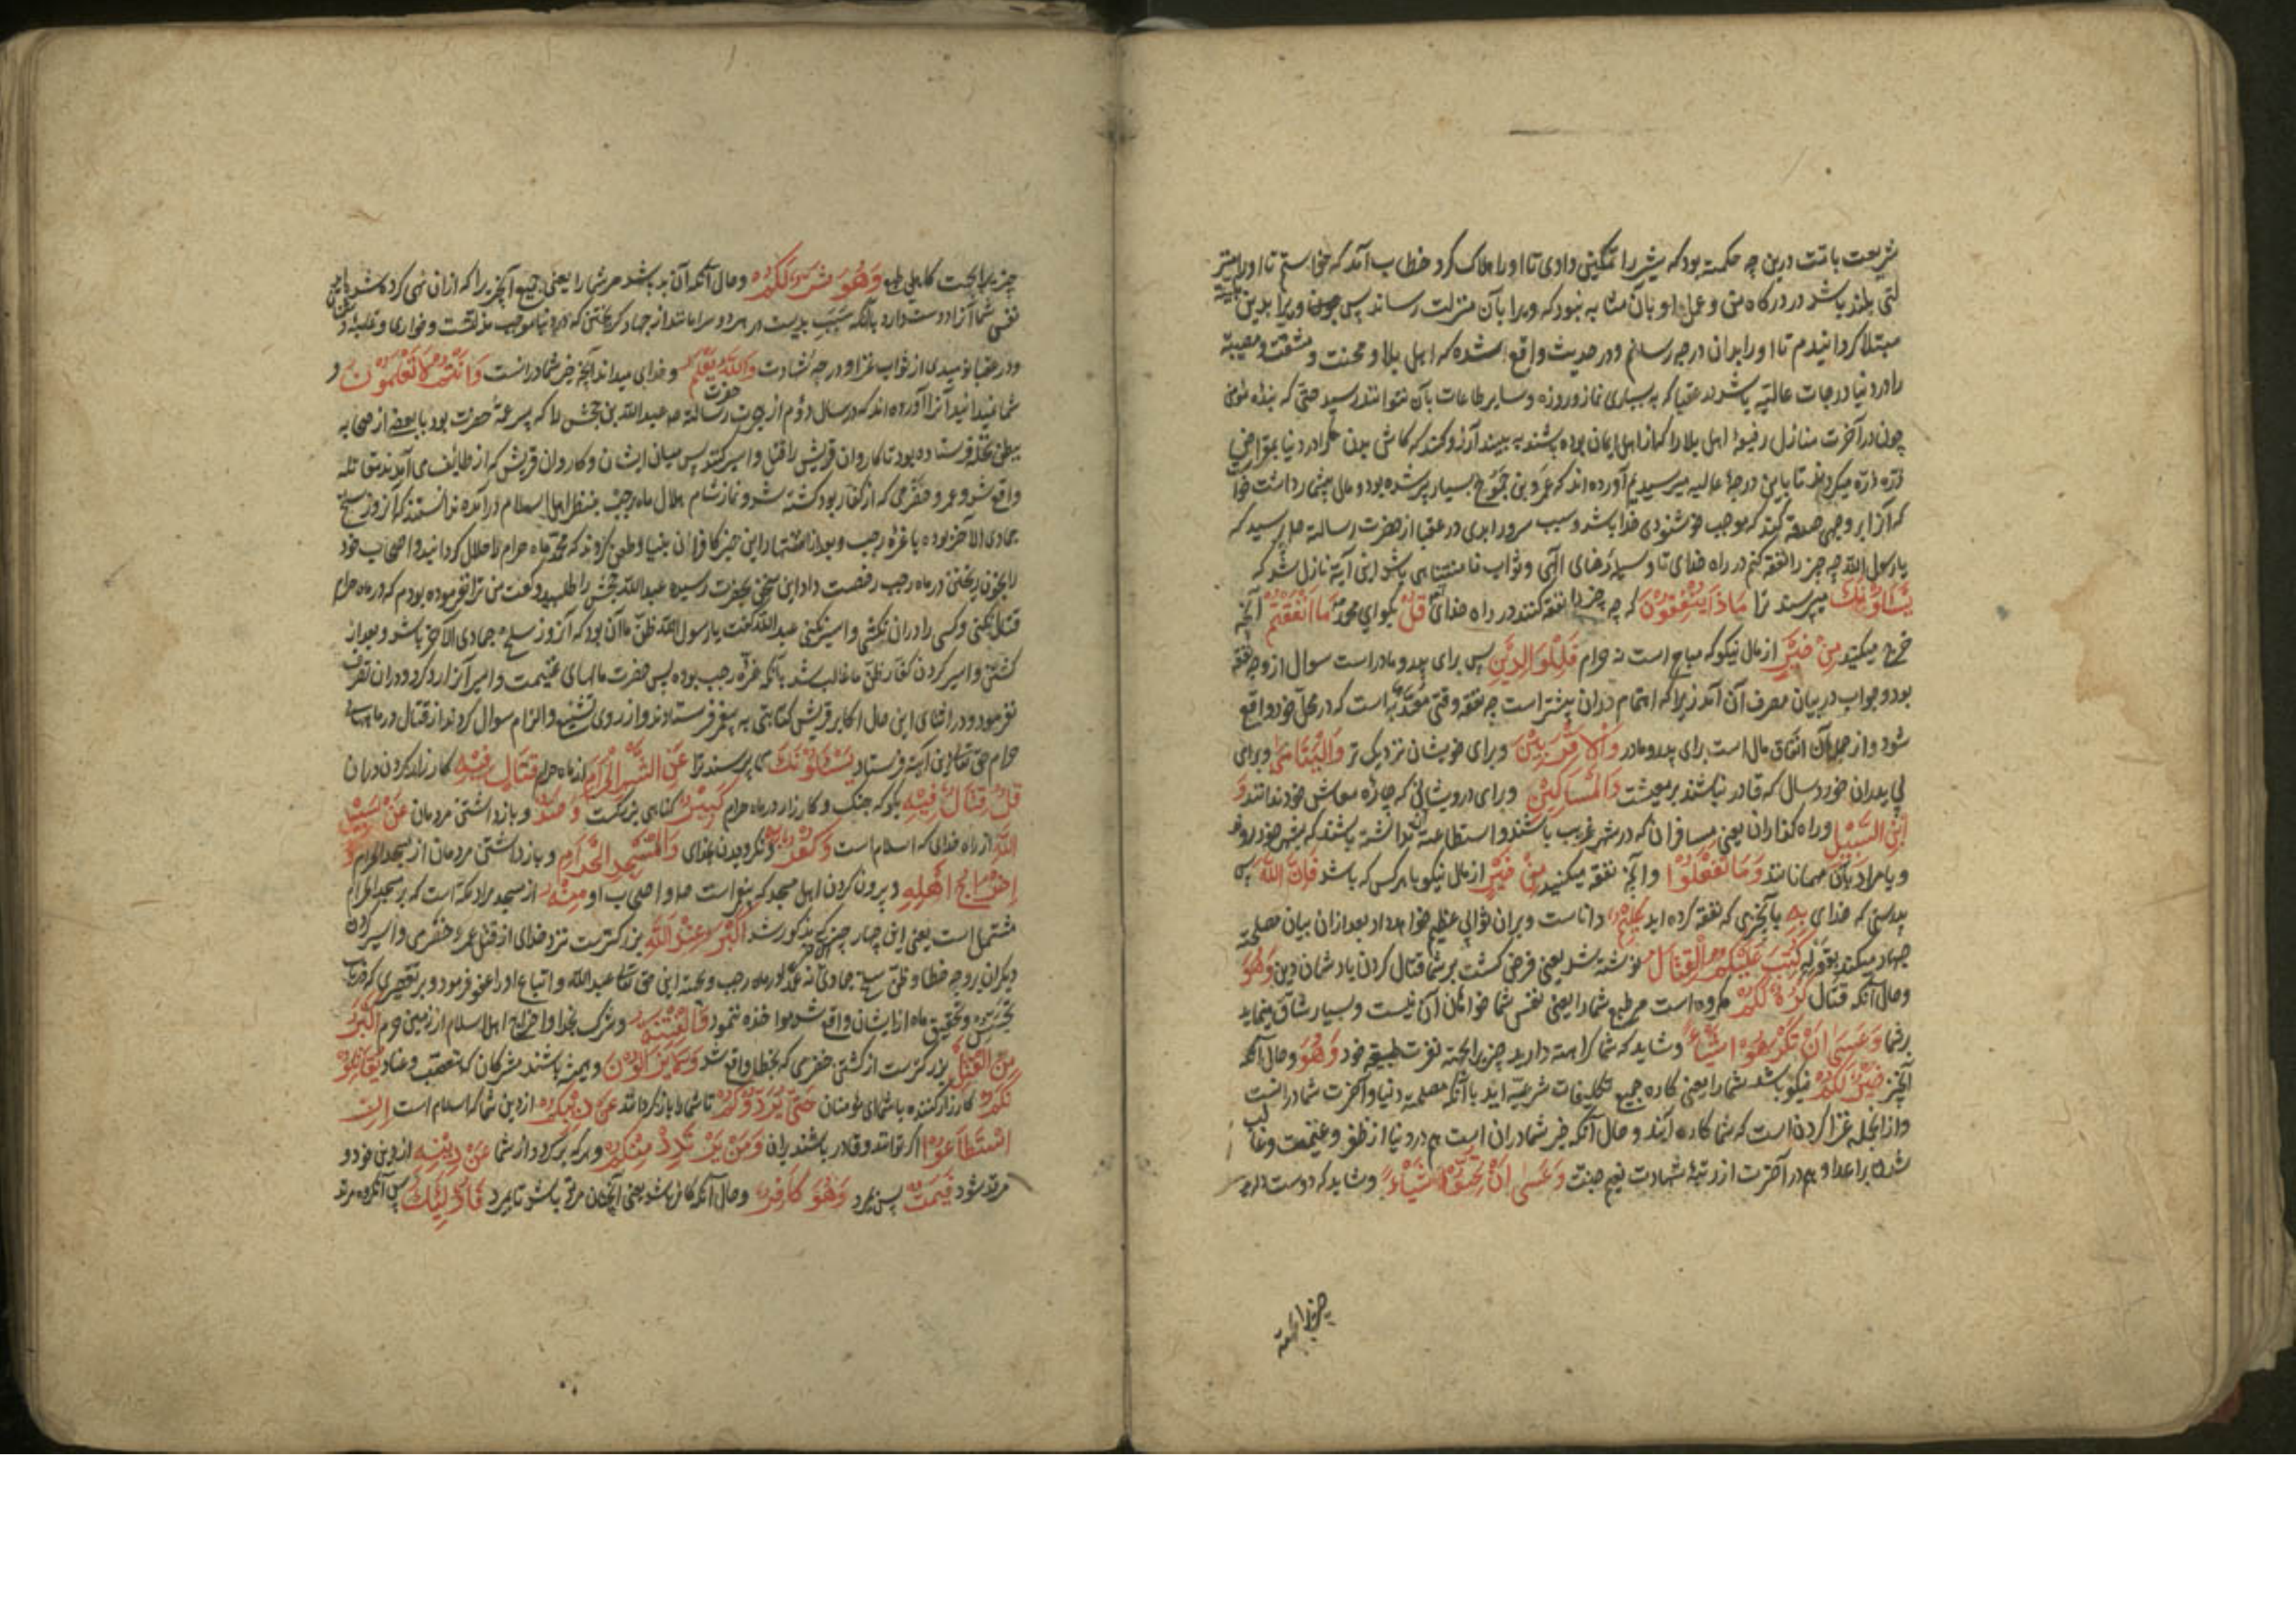 شریعت بافت درین چه حکمت بود که شیر را تمکینی دادی تا او را هلاک کرد خطاب آمد که خواستم تا او را
بلند باشد در درگاه من و عمل او بآن مثابه نبود که ویرا بآن منزلت رساند پس چون ویرا بدین
مبتلا کردانیدم تا او را بدان درجه رسانم و در حدیث واقع شده که اهل بلا و محنت و مشقت و مصیبة
را در دنیا درجات عالیه باشد در عقبا که به بسیاری نماز و روزه و سایر طاعات بآن نتوانند رسید حتی که بنده مؤمن
چون در آخرت منازل رفیع اهل بلا را که از اهل ایمان بوده باشند به بیند آرزو کند که کاش بدن مرا در دنیا بمقراض
ذره ذره میکردند تا باین درجه عالیه میرسیدیم آورده اند که عمرو بن جموح بسیار پیر شده بود و مال بیشمار داشت
که آنرا بر وجهی صدقه کند که موجب خوشنودی خدا باشد و سبب سرور ابدی در عقبا از حضرت رسالة پرسید که
یا رسول الله چه چیز را نفقه کنم در راه خدای تا وسیله رضای الهی و ثواب نامتناهی باشد این آیة نازل شد که
یسئلونک میپرسند ترا ماذا ینفقون که چه چیز را نفقه کنند در راه خدای قل بگو ای محمد ما انفقتم آنچه
خرج میکنید من خیر از مال نیکو که مباح است نه حرام فللوالدین پس برای پدر و مادر است سوال از وجه نفقه
بود و جواب در بیان مصرف آن آمد زیرا که اهتمام در آن بیشتر است چه نفقه وقتی معتد به است که در محل خود واقع
شود و از جمله آن انفاق مال است برای پدر و مادر والاقربین و برای خویشان نزدیک تر والیتامی و برای
بی پدران خورد سال که قادر نباشند بر معیشت والمساکین و برای درویشانی که چاره معاش خود ندانند و
ابن السبیل و راه گذاران یعنی مسافران که در شهر غریب باشند و استطاعت نداشته باشند که بشهر خود روند
و یا مراد بآن مهمانانند وما تفعلوا و آنچه نفقه میکنید من خیر از مال نیکو با هر کس که باشد فان الله پس
بدرستی که خدای به بآنچیزی که نفقه کرده اید علیم دانا است و بر آن ثوابی عظیم خواهد داد بعد از ان بیان مصلحة
جهاد میکند بقوله کتب علیکم القتال نوشته شد یعنی فرض کشت بر شما قتال کردن با دشمنان دین وهو
و حال آنکه قتال کره لکم مکروه است مر طبع شما را یعنی نفس شما خواهان آن نیست و بسیار شاق مینماید
بر شما وعسی ان تکرهوا شیئا و شاید که شما کراهة دارید چیزیرا بجهة نفرت طبیعة خود وهو و حال آنکه
آنچیز خیر لکم نیکو باشد شما را یعنی کاره جمیع تکلیفات شرعیه اید با آنکه مصلحة دنیا و آخرت شما در انست
و از انجمله غزا کردن است که شما کاره آنید و حال آنکه خیر شما در ان است هم در دنیا از ظفر و غنیمت و غالب
شدن بر اعدا و هم در آخرت از رتبة شهادت نعیم جنت وعسی ان تحبوا شیئا و شاید که دوست دارید
چیزیرا بجهة
چیزیرا بجهت کاهلی طبع وهو شر لکم و حال آنکه آن بد باشد مر شما را یعنی جمیع آنچیزیرا که از ان نهی کرده شد
نفس شما آنرا دوست دارد با آنکه سبب بدیست در هر دو سرا مانند از جهاد گریختن که در دنیا موجب مذلت و خواری و غلبه
و در عقبا نومیدی از ثواب غزا و درجه شهادت والله یعلم و خدای میداند آنچه خیر شما در انست وانتم لا تعلمون و
شما نمیدانید آنرا آورده اند که در سال دوم از هجرت حضرت رسالة عبد الله بن جحش را که پسر عمه حضرت بود با بعضی از صحابه
ببطن نخله فرستاده بود تا کاروان قریش را قتل و اسیر کنند پس میان ایشان و کاروان قریش که از طایف می آمدند مقاتله
واقع شد و عمرو حضرمی که از کفار بود کشته شد و نماز شام هلال ماه رجب بنظر اهل اسلام درآمد ندانستند که آنروز سلخ
جمادی الآخر بوده یا غره رجب و بعد از اشتهار این خبر کافران بنیاد طعن کردند که محمد ماه حرام را حلال کردانید و اصحاب خود
را بخون ریختن در ماه رجب رخصت داد این سخن بحضرت رسیده عبد الله جحش را طلبید و گفت من ترا نفرموده بودم که در ماه حرام
قتال بکنی و کسی را در ان نکشی و اسیر نکنی عبد الله گفت یا رسول الله ظن ما آن بود که آنروز سلخ جمادی الآخر باشد و بعد از
کشتن و اسیر کردن کفار ظن ما غالب شد بآنکه غره رجب بوده پس حضرت مالهای غنیمت و اسیر آنرا رد کرد و در ان تصرف
نفرمود و در اثنای این حال اکابر قریش کتابتی به پیغمبر فرستادند و از روی تشنیع و الزام سوال کردند از قتال در ماه
حرام حق تعالی این آیة فرستاد یسئلونک می پرسند ترا عن الشهر الحرام از ماه حرام قتال فیه کارزار کردن در ان
قل قتال فیه بگو که جنک و کارزار در ماه حرام کبیر گناهی بزرکست وصد و باز داشتن مردمان عن سبیل
الله از راه خدای که اسلام است وکفر به و نگرویدن بخدای والمسجد الحرام و باز داشتن مردمان از مسجد الحرام و
اخراج اهله و بیرون کردن اهل مسجد که پیغمبر است و اصحاب او منه از مسجد مراد مکه است که بر مسجد الحرام
مشتمل است یعنی این چهار چیز که مذکور شد اکبر عند الله بزرکترست نزد خدای از قتل عمرو حضرمی و اسیر کردن
دیگران بر وجه خطا و ظن سلخ جمادی الآخر نه عمدا در ماه رجب و بجهة این حق تعالی عبد الله و اتباع او را عفو فرمود و بر تقصیری که در باب
تجسس و تحقیق ماه از ایشان واقع شد مواخذه ننمود والفتنة و شرک بخدا و اخراج اهل اسلام از زمین حرم اکبر
من القتل بزرکترست از کشتن حضرمی که بخطا واقع شد ولا یزالون و همیشه باشند مشرکان که بتعصب و عناد یقاتلو
نکم کارزار کننده با شما ای مؤمنان حتی یردوکم تا شما را باز گردانند عن دینکم از دین شما که اسلام است ان
استطاعوا اگر توانند و قادر باشند بر ان ومن یرتدد منکم و هر که بر کردد از شما عن دینه از دین خود و
مرتد شود فیمت پس بمیرد وهو کافر و حال آنکه کافر باشد یعنی آنچنان مرتد باشد تا بمیرد فاولئک پس آنگروه مرتد